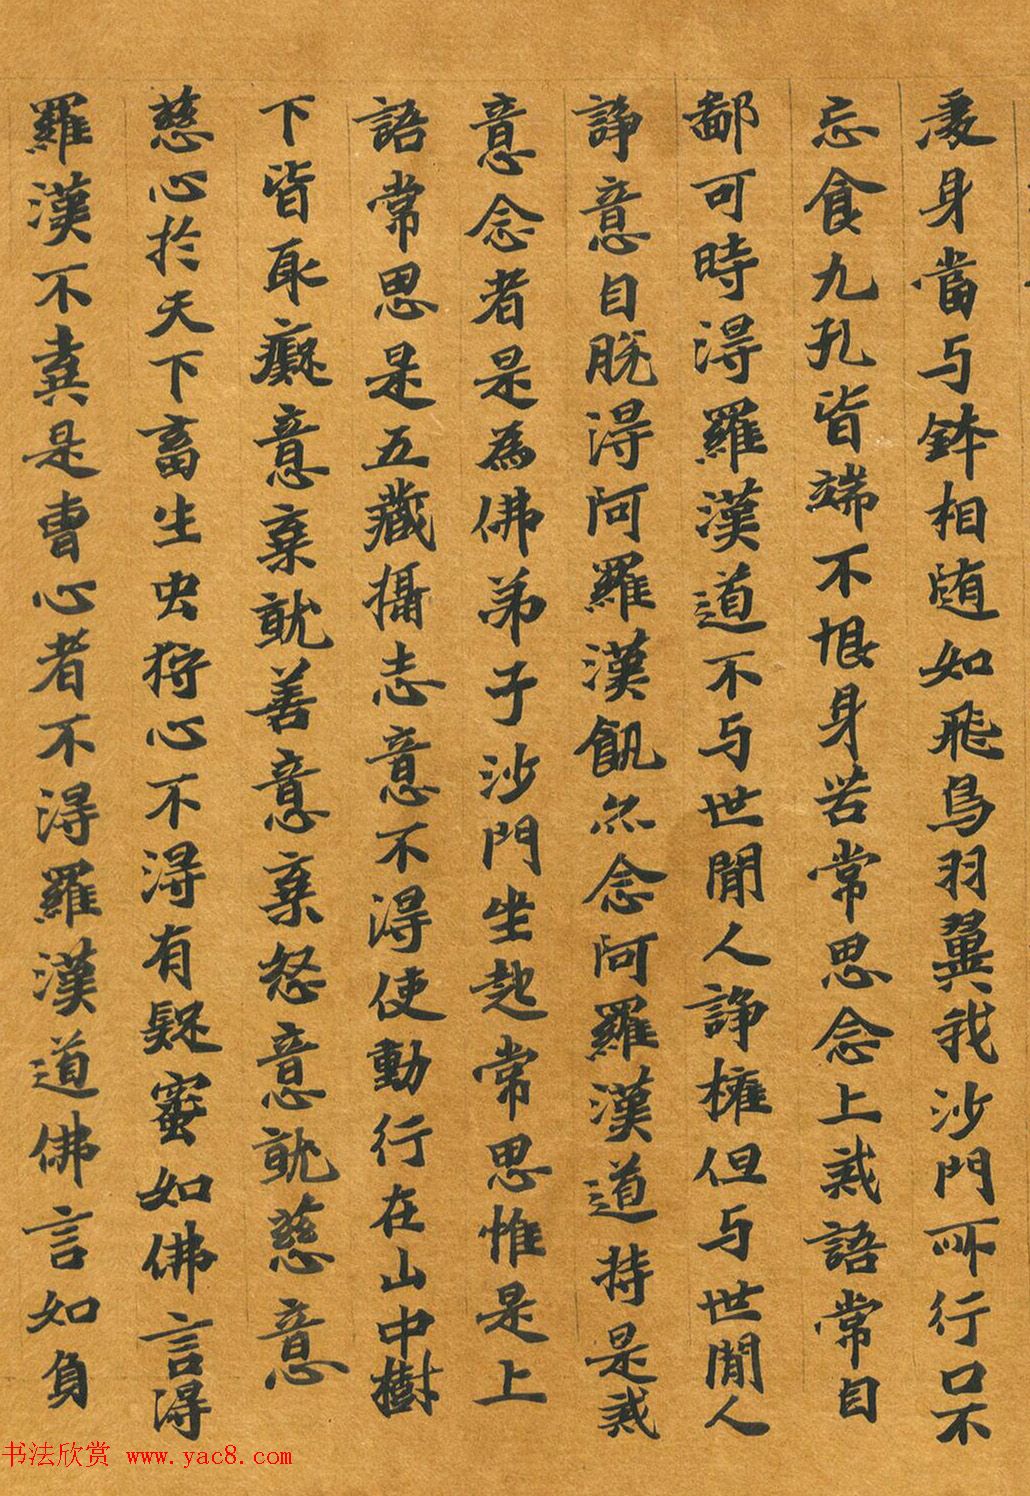 憂身當与鉢相随如飛鳥羽翼我沙門所行口不
忘食九孔皆端不恨身苦常思念上戒語常自
鄙可時得羅漢道不与世閒人諍權但与世閒人
諍意自脫得阿羅漢飢亦念阿羅漢道持是戒
意念者是為佛弟子沙門坐起常思惟是上
語常思是五藏攝志意不得使動行在山中樹
下皆耻癡意棄就善意棄怒意就慈意
慈心於天下畜生虫狩心不得有疑蜜如佛言得
羅漢不冀是曹心者不得羅漢道佛言如負
书法欣赏 www.yac8.com